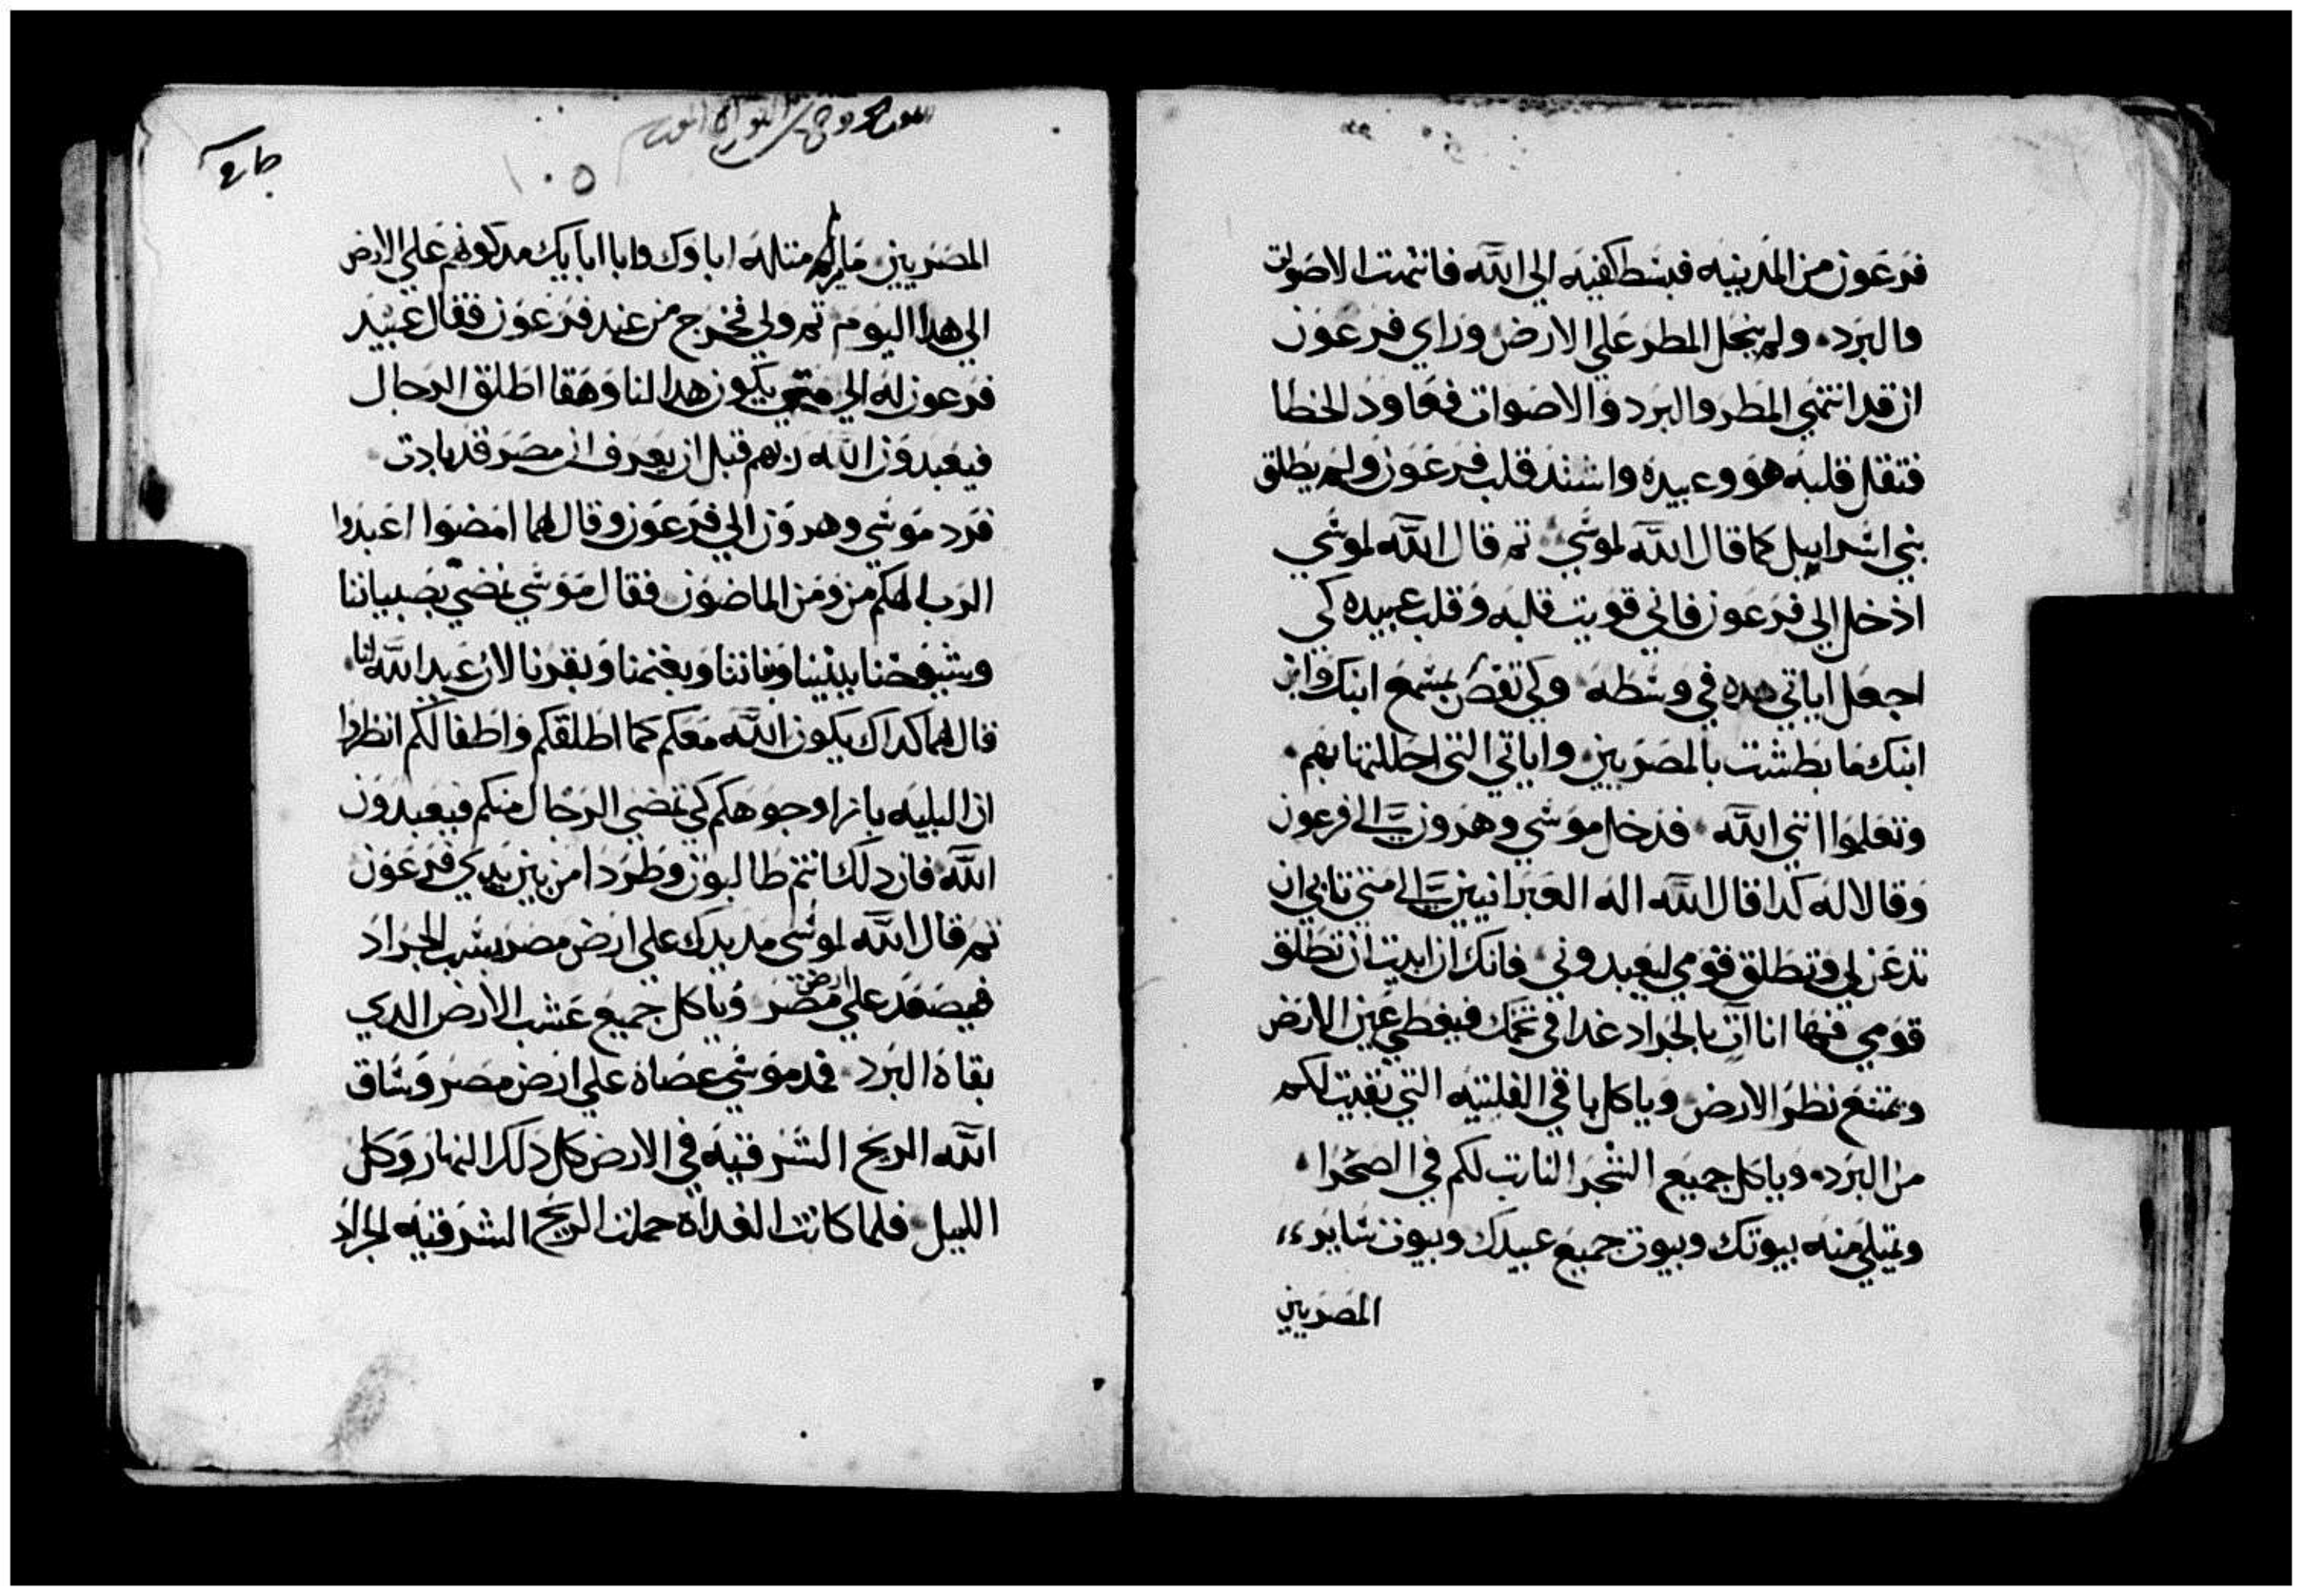 فرعون من المدينه فبسط كفيه الي الله فانتهت الاصوات
والبرد ولم ينحل المطر علي الارض وراي فرعون
ان قد انتهي المطر والبرد والاصوات فعاود الخطا
فتقل قلبه هو وعبيده واشتد قلب فرعون ولم يطلق
بني اسراييل كما قال الله لموسي تم قال الله لموسي
ادخل الي فرعون فاني قويت قلبه وقلب عبيده كي
اجعل اياتي هده في وسطه وكي تقص بمسمع ابنك وابن
ابنك ما بطشت بالمصريين واياتي التي احللتها بهم
وتعلموا انني الله فدخل موسي وهرون الي فرعون
وقالا له كدا قال الله اله العبرانيين الي متي تابي ان
تدعن لي وتطلق قومي ليعبدوني فانك ان ابيت ان تطلق
قومي فها انا ات بالجراد غدا في تخمك فيغطي عين الارض
ويمتنع نظر الارض وياكل باقي الفلتيه التي بقيت لكم
من البرد وياكل جميع الشجر النابت لكم في الصحرا
ويمتلي منه بيوتك وبيوت جميع عبيدك وبيوت ساير
المصريين
١٠٥
المصريين ما لم ير مثله اباوك وابا ابايك مد كونهم علي الارض
الي هدا اليوم تم ولي فخرج من عند فرعون فقال عبيد
فرعون له الي متي يكون هدا لنا وهقا اطلق الرجال
فيعبدون الله ربهم قبل ان يعرف ان مصر قد بادت
فرد موسي وهرون الي فرعون وقال لهما امضوا اعبدوا
الرب الهكم من ومن الماضون فقال موسي نمضي بصبياننا
وشيوخنا ببنينا وبناتنا وبغنمنا وبقرنا لان عيد الله لنا
قال لهما كداك يكون الله معكم كما اطلقكم واطفالكم انظروا
ان البليه بازا وجوهكم كي تمضي الرجال منكم فيعبدون
الله فان دلك انتم طالبون وطردا من بين يدي فرعون
تم قال الله لموسي مد يدك علي ارض مصر بسبب الجراد
فيصعد علي ارض مصر وياكل جميع عشب الارض الدي
بقاه البرد فمد موسي عصاه علي ارض مصر وساق
الله الريح الشرقيه في الارض كل دلك النهار وكل
الليل فلما كانت الغداه حملت الريح الشرقيه الجراد